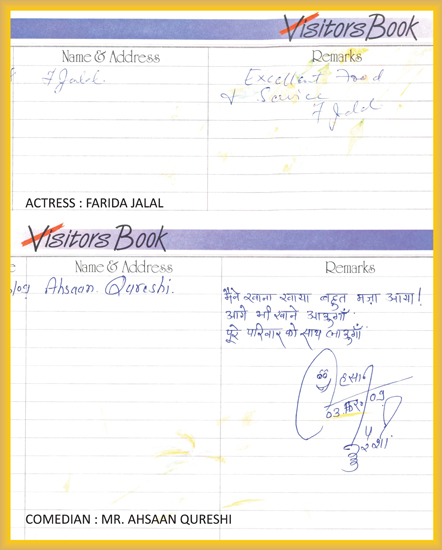 Visitors Book
Name & Address Remarks
F Jalal. Excellent Food
& Service
F Jalal
ACTRESS : FARIDA JALAL
Visitors Book
Name & Address Remarks
/09 Ahsaan Qureshi. मैंने खाना खाया बहुत मज़ा आया!
आगे भी खाने आऊगाँ
पूरे परिवार को साथ लाऊगाँ
हसान
03 09
COMEDIAN : MR. AHSAAN QURESHI